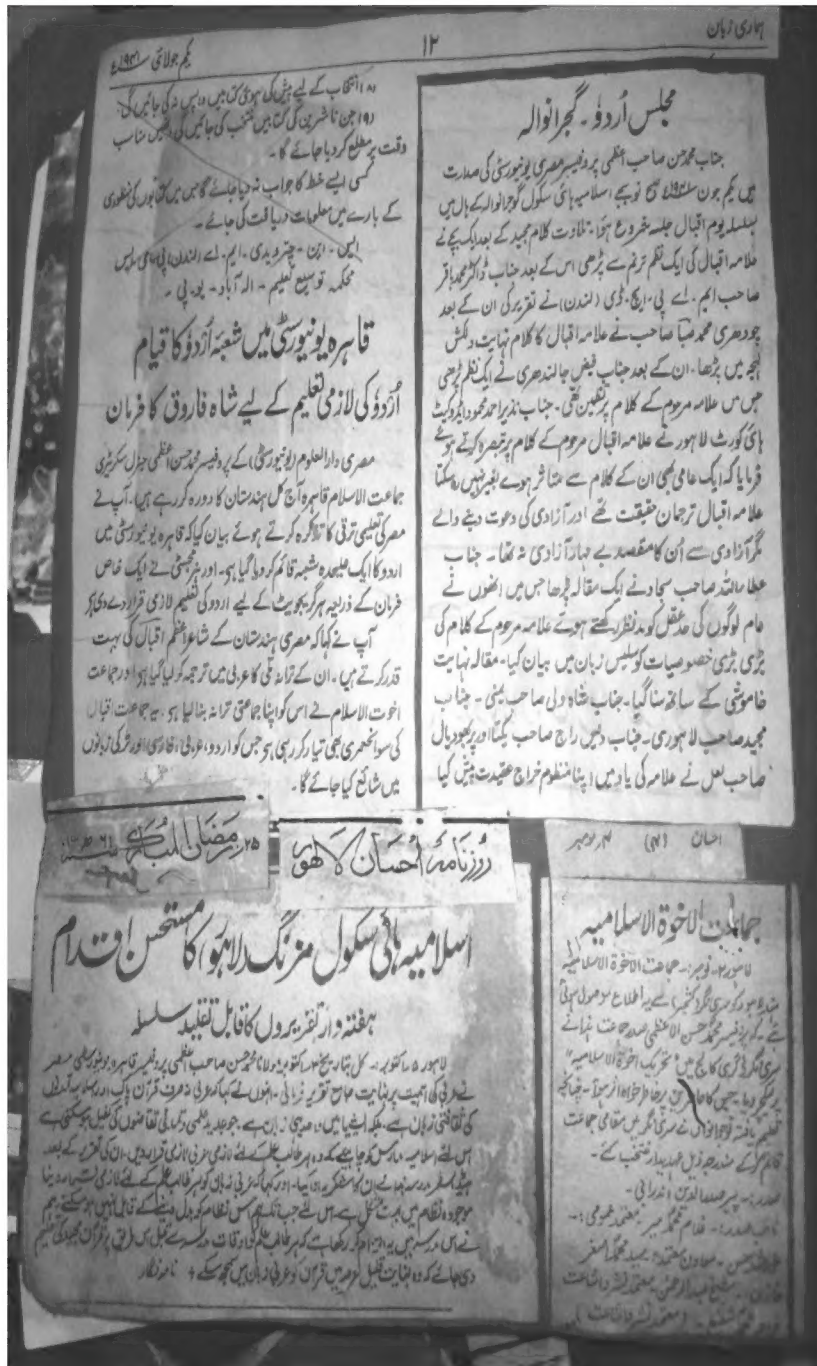 ہماری زبان
۱۲
یکم جولائی ۱۹۴۱ع
مجلس اُردو۔ گجرانوالہ
جناب محمد حسن صاحب اعظمی پروفیسر مصری یونیورسٹی کی صدارت
میں یکم جون ۱۹۴۱ع صبح نو بجے اسلامیہ ہائی سکول گوجرانوالہ کے ہال میں
بسلسلہ یوم اقبال جلسہ شروع ہوا۔ تلاوت کلام مجید کے بعد ایک بچے نے
علامہ اقبال کی ایک نظم ترنم سے پڑھی اس کے بعد جناب ڈاکٹر محمد باقر
صاحب ایم۔ اے پی۔ ایچ۔ ڈی (لندن) نے تقریر کی ان کے بعد
چودھری محمد صاحب نے علامہ اقبال کا کلام نہایت دلکش
لہجہ میں پڑھا۔ ان کے بعد جناب فیض جالندھری نے ایک نظم پڑھی
جس میں علامہ مرحوم کے کلام پر تضمین تھی۔ جناب نذیر احمد محمود ایڈوکیٹ
ہائی کورٹ لاہور نے علامہ اقبال مرحوم کے کلام پر تبصرہ کرتے ہوئے
فرمایا کہ ایک عامی بھی ان کے کلام سے متاثر ہوے بغیر نہیں رہ سکتا
علامہ اقبال ترجمان حقیقت تھے اور آزادی کی دعوت دینے والے
مگر آزادی سے اُن کا مقصد بے مہار آزادی نہ تھا۔ جناب
عطاء اللہ صاحب سجاد نے ایک مقالہ پڑھا جس میں انھوں نے
عام لوگوں کی حد عقل کو مدنظر رکھتے ہوئے علامہ مرحوم کے کلام کی
بڑی بڑی خصوصیات کو سلیس زبان میں بیان کیا۔ مقالہ نہایت
خاموشی کے ساتھ سنا گیا۔ جناب شاہ ولی صاحب یمنی۔ جناب
مجید صاحب لاہوری۔ جناب دیس راج صاحب یکتا اور پربھودیال
صاحب لعل نے علامہ کی یاد میں اپنا منظوم خراج عقیدت پیش کیا
(۸) انتخاب کے لیے پیش کی ہوئی کتابیں واپس نہ کی جائیں گی۔
(۹) جن ناشرین کی کتابیں منتخب کی جائیں گی انھیں مناسب
وقت پر مطلع کر دیا جائے گا۔
کسی ایسے خط کا جواب نہ دیا جائے گا جس میں کتابوں کی منظوری
کے بارے میں معلومات دریافت کی جائے۔
ایس۔ این۔ چترویدی۔ ایم۔ اے (لندن) پی۔ سی۔ ایس
محکمہ توسیع تعلیم۔ الہ آباد۔ یو۔ پی۔
قاہرہ یونیورسٹی میں شعبۂ اُردو کا قیام
اُردو کی لازمی تعلیم کے لیے شاہ فاروق کا فرمان
مصری دارالعلوم (یونیورسٹی) کے پروفیسر محمد حسن اعظمی جنرل سکریٹری
جماعت الاسلام قاہرہ آج کل ہندستان کا دورہ کر رہے ہیں۔ آپ نے
مصر کی تعلیمی ترقی کا تذکرہ کرتے ہوئے بیان کیا کہ قاہرہ یونیورسٹی میں
اردو کا ایک علیحدہ شعبہ قائم کر دیا گیا ہی۔ اور ہز مجسٹی نے ایک خاص
فرمان کے ذریعہ ہر گریجویٹ کے لیے اردو کی تعلیم لازمی قرار دے دی ہی
آپ نے کہا کہ مصری ہندستان کے شاعر اعظم اقبال کی بہت
قدر کرتے ہیں۔ ان کے ترانۂ ملی کا عربی میں ترجمہ کر لیا گیا ہی اور جماعت
اخوت الاسلام نے اس کو اپنا جماعتی ترانہ بنا لیا ہی۔ یہ جماعت اقبال
کی سوانحعمری بھی تیار کر رہی ہی جس کو اردو، عربی، فارسی اور ترکی زبانوں
میں شائع کیا جائے گا۔
روزنامہ احسان لاہور
۲۵ رمضان المبارک ۶۱ھ
اسلامیہ ہائی سکول مزنگ (لاہور) کا مستحسن اقدام
ہفتہ وار تقریروں کا قابل تقلید سلسلہ
لاہور ۵ اکتوبر:۔ کل بتاریخ ۴ اکتوبر مولانا محمد حسن صاحب اعظمی پروفیسر قاہرہ یونیورسٹی مصر
نے عربی کی اہمیت پر نہایت جامع تقریر فرمائی۔ انہوں نے کہا کہ عربی نہ صرف قرآن پاک اور اسلامی تمدن
کی ثقافتی زبان ہے۔ بلکہ ایشیا میں واحد یہی زبان ہے۔ جو جدید علمی تقاضوں کی کفیل ہو سکتی ہے
اس لئے اسلامیہ مدارس کو چاہیئے کہ وہ ہر طالب علم کے لئے لازمی عربی لازمی قرار دیں۔ ان کی تقریر کے بعد
ہیڈ ماسٹر نے ان کا شکریہ ادا کیا۔ اور کہا کہ عربی زبان کو ہر طالب علم کے لئے لازمی قرار دینا
موجودہ نظام میں بہت مشکل ہے۔ اس لئے جب تک ہم اس نظام کو بدل دینے کے قابل نہیں ہو سکتے۔ ہم
نے اس مدرسہ میں یہ التزام کر رکھا ہے کہ ہر طالب علم کو اوقات مدرسہ سے قبل اس طریق پر قرآن مجید کی تعلیم
دی جائے کہ وہ نہایت قلیل عرصہ میں قرآن کو عربی زبان میں سمجھ سکے + نامہ نگار
احسان (۴) ۴ نومبر
جماعت الاخوۃ الاسلامیہ
لاہور ۲ نومبر:۔ جماعت الاخوۃ الاسلامیہ
کو سری نگر (کشمیر) سے یہ اطلاع موصول ہوئی
ہے۔ کہ پروفیسر محمد حسن الاعظمی صدر جماعت ہذا نے
سری نگر ڈگری کالج میں "تحریک اخوۃ الاسلامیہ"
پر لیکچر دیا۔ جس کا حاضرین پر خاطر خواہ اثر ہوا۔ چنانچہ
تعلیم یافتہ نوجوانوں نے سری نگر میں مقامی جماعت
قائم کر کے مندرجہ ذیل عہدیدار منتخب کئے۔
صدر:۔ پیر صدر الدین اندرابی۔
نائب صدر:۔ غلام محمد میر۔ معتمد عمومی:۔
معاون معتمد:۔ سید محمد اصغر
خازن:۔ شیخ عبدالرحمٰن۔ معتمد نشر و اشاعت
(معتمد نشر و اشاعت)